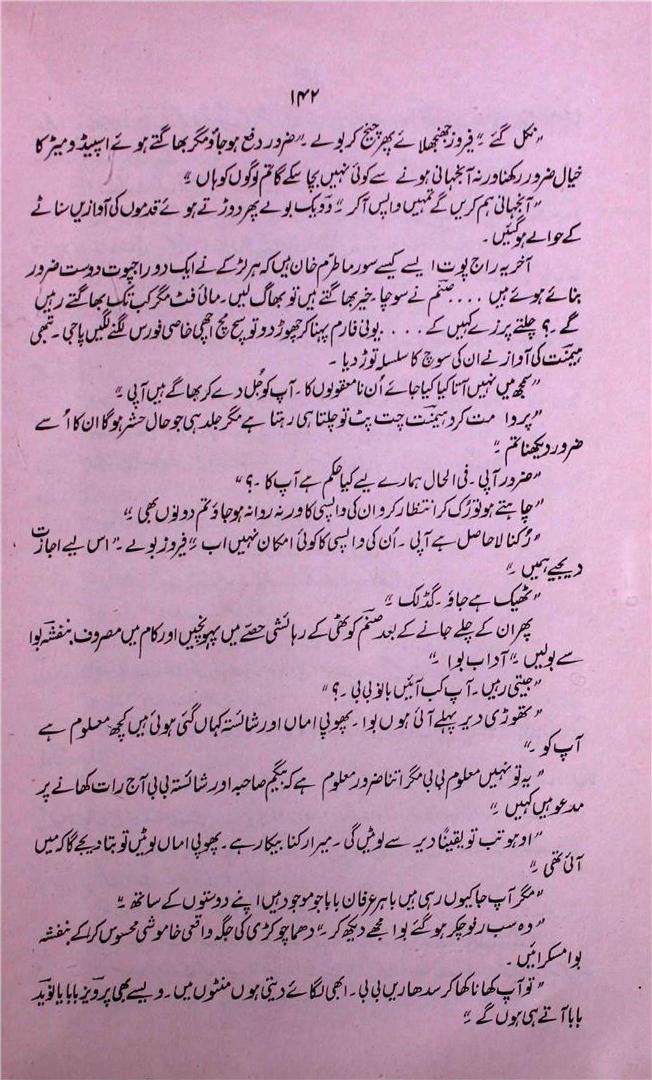 ۱۴۲
"نکل گئے ۔" فیروز جھنجھلائے پھر چیخ کر بولے ۔ "ضرور دفع ہو جاؤ مگر بھاگتے ہوئے اسپیڈومیٹر کا
خیال ضرور رکھنا ورنہ آنجہانی ہونے سے کوئی نہیں بچا سکے گا تم لوگوں کو ہاں ۔"
"آنجہانی ہم کریں گے تمہیں واپس آ کر ۔" دویک بولے پھر دوڑتے ہوئے قدموں کی آوازیں سناٹے
کے حوالے ہو گئیں ۔
آخر یہ راج پوت ایسے کیسے سورما طرم خان ہیں کہ ہر لڑکے نے ایک دو راجپوت دوست ضرور
بنائے ہوئے ہیں .... صنم نے سوچا ۔ خیر بھاگتے ہیں تو بھاگ لیں ۔ مائی فٹ مگر کب تک بھاگتے رہیں
گے ۔؟ چلتے پرزے کہیں کے .... یونی فارم پہنا کر چھوڑ دو تو سچ مچ اچھی خاصی فورس لگنے لگیں پاجی ۔ تبھی
ہیمنت کی آواز نے ان کی سوچ کا سلسلہ توڑ دیا ۔
"سمجھ میں نہیں آتا کیا کیا جائے اُن نامعقولوں کا ۔ آپ کو جُل دے کر بھاگے ہیں آپی ۔"
"پروا مت کرو ہیمنت چت پٹ تو چلتا ہی رہتا ہے مگر جلد ہی جو حال حشر ہو گا ان کا اُسے
ضرور دیکھنا تم ۔"
"ضرور آپی ۔ فی الحال ہمارے لیے کیا حکم ہے آپ کا ۔؟"
"چاہتے ہو تو رُک کر انتظار کرو ان کی واپسی کا ورنہ روانہ ہو جاؤ تم دونوں بھی ۔"
"رُکنا لاحاصل ہے آپی ۔ اُن کی واپسی کا کوئی امکان نہیں اب ۔" فیروز بولے ۔ "اس لیے اجازت
دیجیے ہمیں ۔"
"ٹھیک ہے جاؤ ۔ گڈ لک ۔"
پھر ان کے چلے جانے کے بعد صنم کوٹھی کے رہائشی حصّے میں پہونچیں اور کام میں مصروف بنفشہ بوا
سے بولیں ۔ "آداب بوا ۔"
"جیتی رہیں ۔ آپ کب آئیں بانو بی بی ۔؟"
"تھوڑی دیر پہلے آئی ہوں بوا ۔ پھوپی اماں اور شائستہ کہاں گئی ہوئی ہیں کچھ معلوم ہے
آپ کو ۔"
"یہ تو نہیں معلوم بی بی مگر اتنا ضرور معلوم ہے کہ بیگم صاحبہ اور شائستہ بی بی آج رات کھانے پر
مدعو ہیں کہیں ۔"
"اوہو تب تو یقیناً دیر سے لوٹیں گی ۔ میرا رکنا بیکار ہے ۔ پھوپی اماں لوٹیں تو بتا دیجیے گا کہ میں
آئی تھی ۔"
"مگر آپ جا کیوں رہی ہیں باہر عرفان بابا جو موجود ہیں اپنے دوستوں کے ساتھ ۔"
"وہ سب رفوچکر ہو گئے بوا مجھے دیکھ کر ۔" دھما چوکڑی کی جگہ واقعی خاموشی محسوس کر کے بنفشہ
بوا مسکرائیں ۔
"تو آپ کھانا کھا کر سدھاریں بی بی ۔ ابھی لگائے دیتی ہوں منٹوں میں ۔ ویسے بھی پرویز بابا یا نوید
بابا آتے ہی ہوں گے ۔"